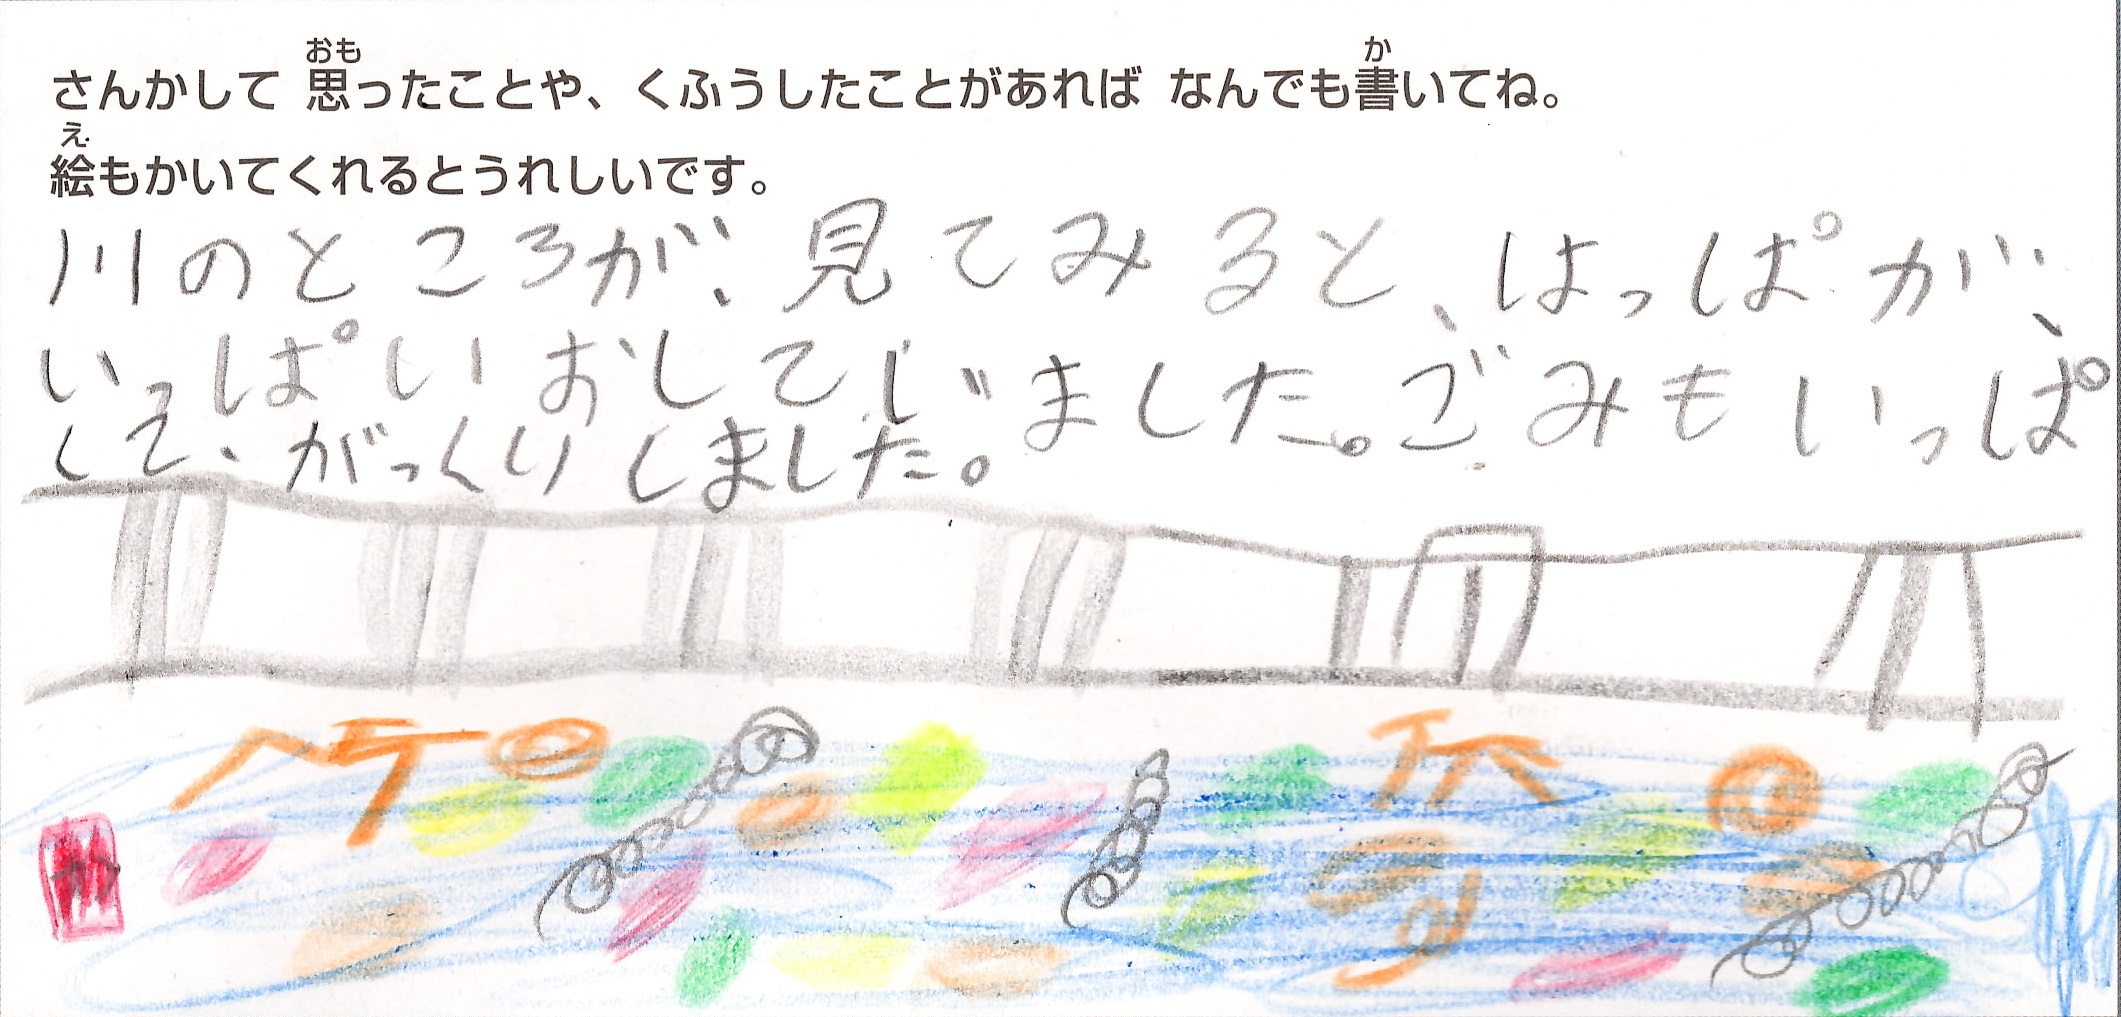 さんかして 思ったことや、くふうしたことがあれば なんでも書いてね。
絵もかいてくれるとうれしいです。
川のところが、見てみると、はっぱが、
いっぱいおしてじました。ごみもいっぱ
くて、がっくりしました。